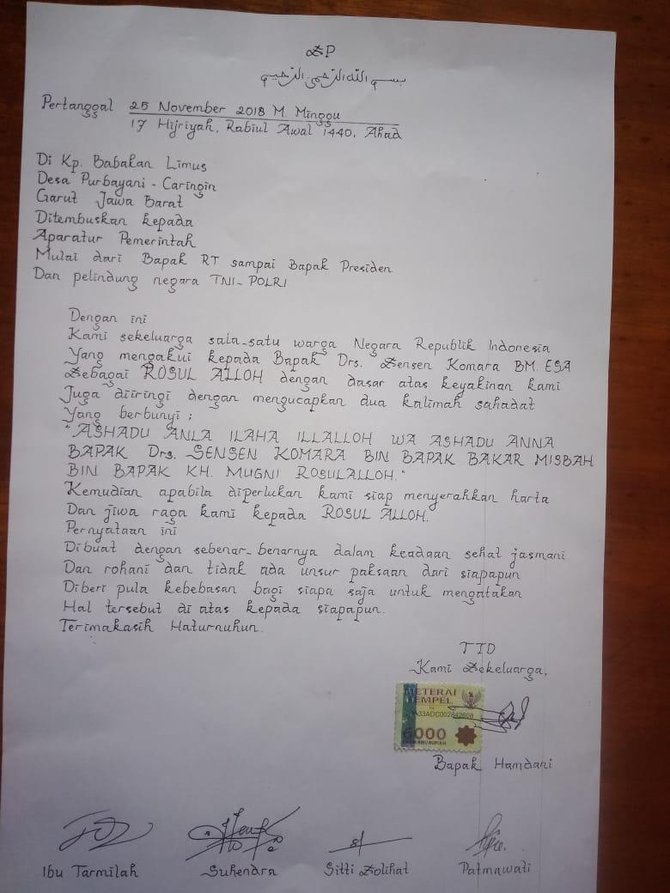 ZP
بسم الله الرحمن الرحيم
Pertanggal 25 November 2018 M. Minggu
17 Hijriyah, Rabiul Awal 1440, Ahad
Di Kp. Babakan Limus
Desa Purbayani - Caringin
Garut Jawa Barat
Ditembuskan kepada
Aparatur Pemerintah
Mulai dari Bapak RT sampai Bapak Presiden
Dan pelindung negara TNI-POLRI
Dengan ini
Kami sekeluarga sala-satu warga Negara Republik Indonesia
Yang mengakui kepada Bapak Drs. Zensen Komara BM. ESA
Sebagai ROSUL ALLOH dengan dasar atas keyakinan kami
Juga diiringi dengan mengucapkan dua kalimah sahadat
Yang berbunyi ;
"ASHADU ANLA ILAHA ILLALLOH WA ASHADU ANNA
BAPAK Drs. SENSEN KOMARA BIN BAPAK BAKAR MISBAH
BIN BAPAK KH. MUGNI ROSULALLOH."
Kemudian apabila diperlukan kami siap menyerahkan harta
Dan jiwa raga kami kepada ROSUL ALLOH.
Pernyataan ini
Dibuat dengan sebenar-benarnya dalam keadaan sehat jasmani
Dan rohani dan tidak ada unsur paksaan dari siapapun
Diberi pula kebebasan bagi siapa saja untuk mengatakan
Hal tersebut di atas kepada siapapun.
Terimakasih Haturnuhun.
TTD
Kami Sekeluarga,
METERAI
TEMPEL
6000
Bapak Hamdani
Ibu Tarmilah Suhendra Sitti Solihat Patmawati